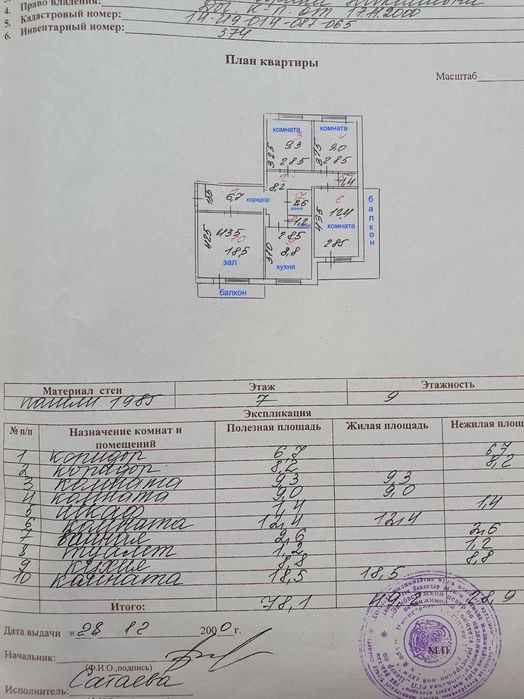 4. Право владения:
5. Кадастровый номер: 14-219-014-087-065
6. Инвентарный номер: 374
План квартиры
Масштаб
комната 3 комната 4
9,3 9,0
325 285 315 285
2 8,2 5 1,4
155 1 6,7 коридор 7 2,6 6 12,4
1,2 435 комната
425 435 285 285
10 18,5 310 9 8,8
зал кухня
балкон
балкон
Материал стен Этаж Этажность
панели 1985 7 9
Экспликация
№ п/п Назначение комнат и помещений Полезная площадь Жилая площадь Нежилая площадь
1 коридор 6,7 6,7
2 коридор 8,2 8,2
3 комната 9,3 9,3
4 комната 9,0 9,0
5 шкаф 1,4 1,4
6 комната 12,4 12,4
7 ванная 2,6 2,6
8 туалет 1,2 1,2
9 кухня 8,8 8,8
10 комната 18,5 18,5
Итого: 78,1 49,2 28,9
Дата выдачи «28 12 2000 г.
Начальник:
(Ф.И.О.,подпись)
М.П.
Исполнитель: Сагаева